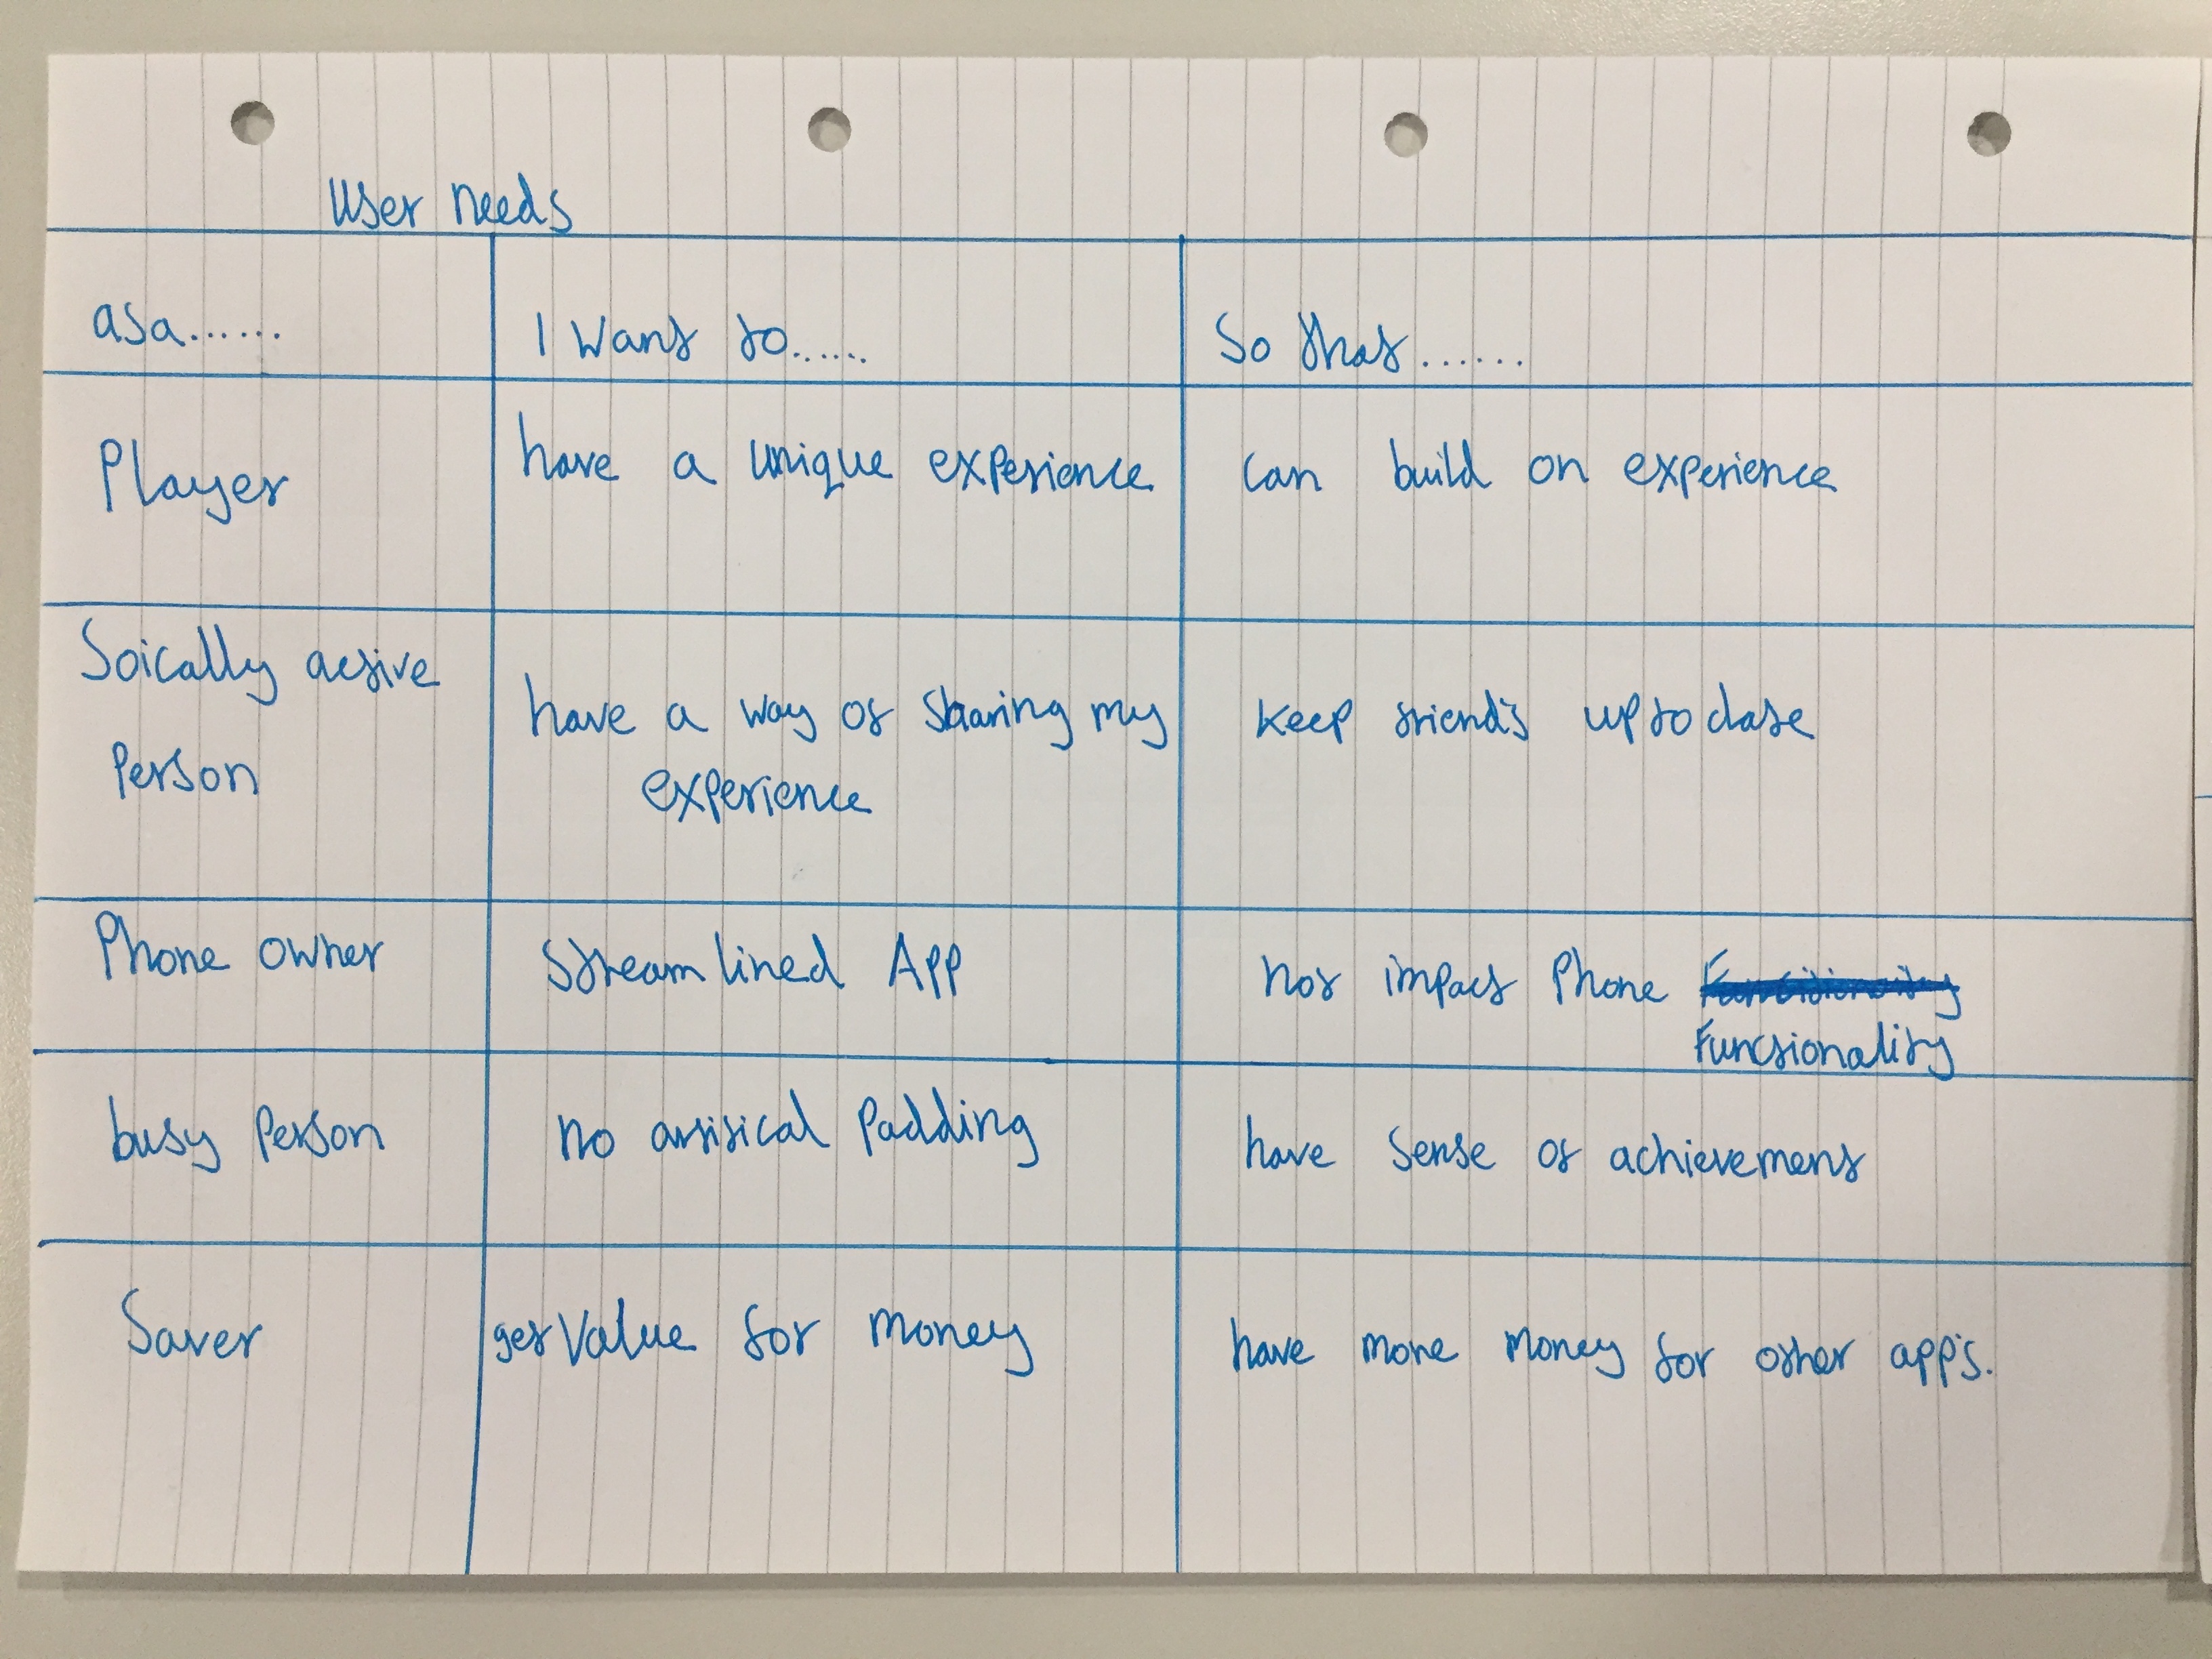 User needs
as a......
I want to......
So that......
Player
have a unique experience
can build on experience
Soically active
Person
have a way of sharing my
experience
keep friend's up to date
Phone owner
Streamlined App
not impact Phone
Functionality
busy Person
no artifical Padding
have sense of achievement
Saver
get Value for money
have more money for other app's.